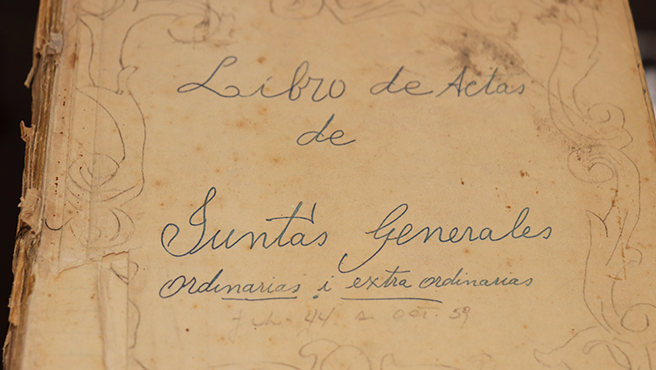 Libro de Actas
de
Juntas Generales
ordinarias i extra ordinarias
feb. 44 a oct. 59